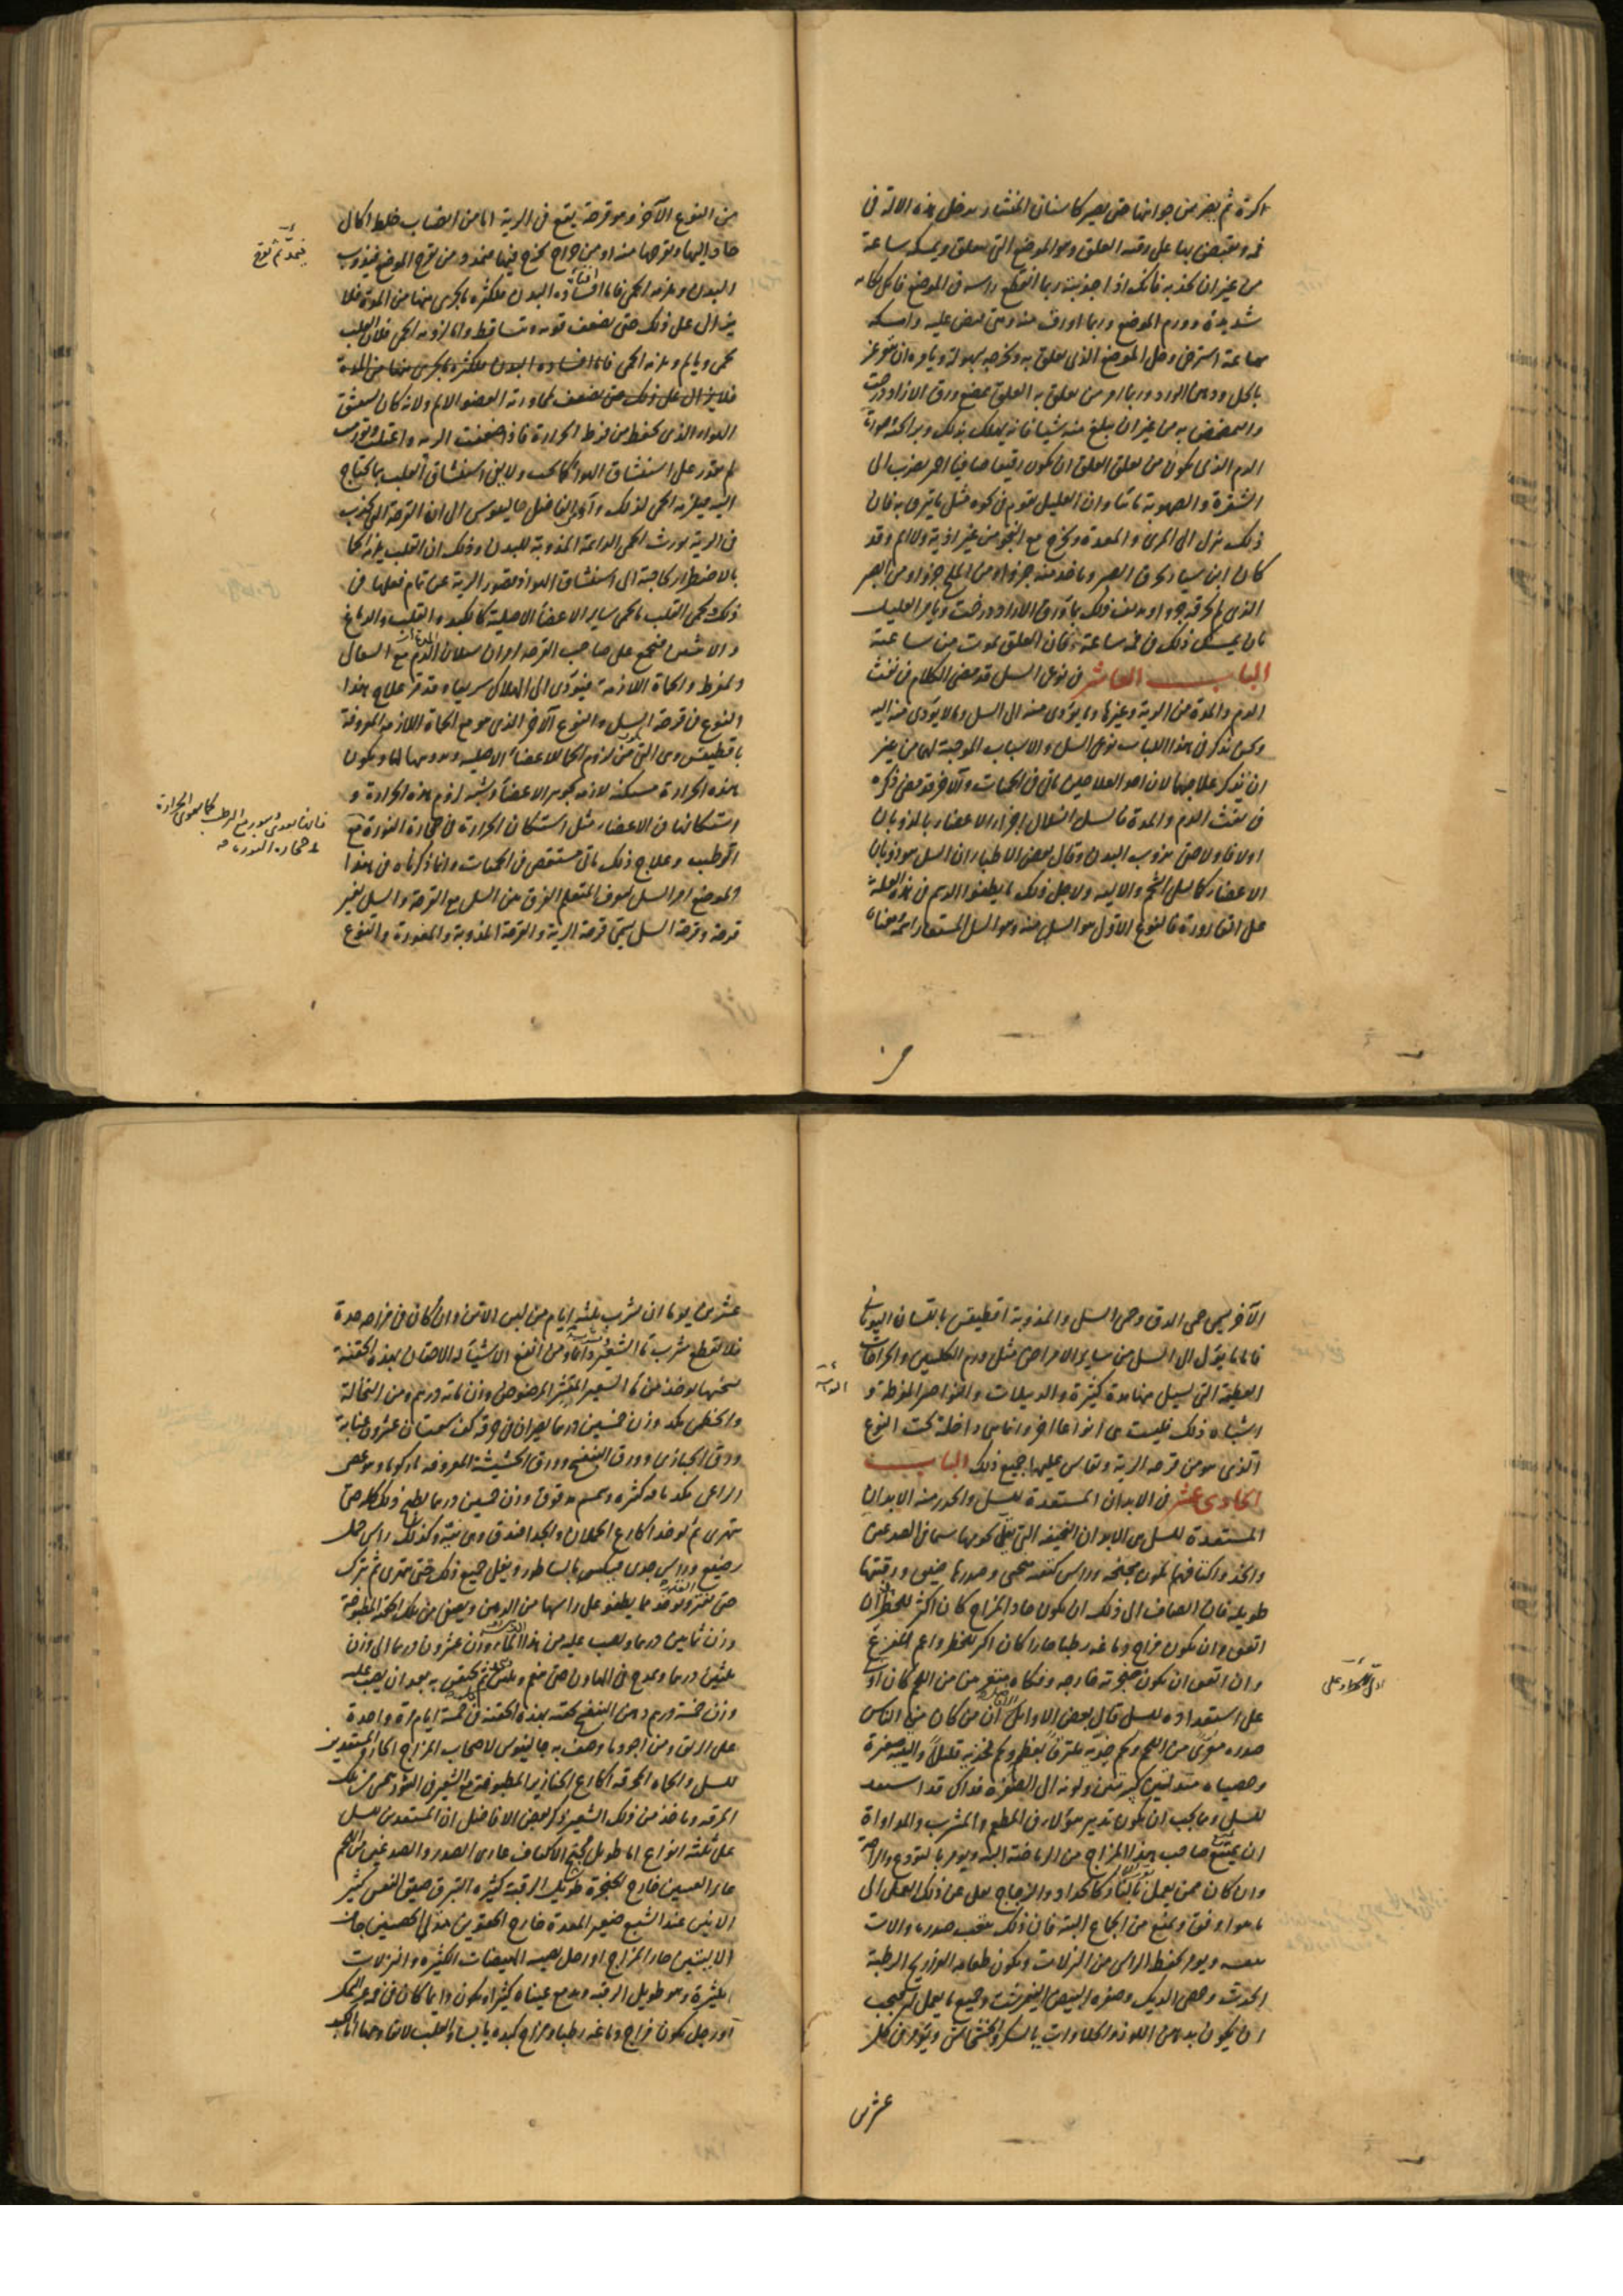 اكرة ثم يغرز من جوانبها حتى يصير كاسنان المنشار يدخل هذه الالة فى
فمه ويقبض بها على رقبة العلق وهو الموضع التى يتعلق ويمسكه ساعة
من غير ان يجذبه فانك اذا جذبته ربما انقطع راسه فى الموضع فاكل كاكله
شديدة وورم الموضع وربما اورث منه ومتى قبض عليه وامسكه
ساعة استرخى وخلى الموضع الذى تعلق به ويخرجه بسهولة ويامره ان يتغرغر
بالخل ودهن الورد وربما امر من تعلق به العلق بمضغ ورق الازاددرخت
والتمضمض به من غير ان يبلغ منه شيئا فانه يهلك بذلك
الدم الذى يكون من تعلق العلق ان يكون رقيقا صافيا احمر يضرب الى
الشقرة والصهوبة
ذلك ينزل الى المرى والمعدة ويخرج مع النجو من غير اذية ولا الم وقد
كان ابن سيار يحرق الصبر وياخذ منه جزوا ومن الملح جزوا ومن الصبر
الذى لم يحرقه جزوا ويديف ذلك بماء ورق الازاددرخت ويامر العليل
بان يمسك ذلك فى فمه ساعة فان العلق يموت من ساعته
الباب العاشر فى نوعى السل قد مضى الكلام فى نفث
الدم والمدة من الرية وغيرها وما يؤدى منه الى السل وما لا يؤدى منه اليه
ونحن نذكر فى هذا الباب نوعى السل والاسباب الموجبة لهما من غير
ان نذكر علاجهما لان احد العلاجين ياتى فى الحميات والاخر قد مضى ذكره
فى نفث الدم والمدة فالسل انسلال اجزاء الاعضاء بالذوبان
اولا فاولا حتى يذوب البدن وقال بعض الاطباء ان السل هو ذوبان
الاعضاء كالسل الشحم والالية ولاجل ذلك ما يطفوا الدسم فى هذه العلة
على القارورة فالنوع الاول هو السل منه وهو السل المستعار اسمه
من النوع الاخر وهو قرحة يقع فى الرية اما من انصباب خلط اكال
حاد اليها ويقرحها منه او من خراج يخرج فيها فيمد ومن تقرح الموضع فيذوب
البدن ويلزمه الحمى فاما افساده البدن فلكثرة ما يجرى منها من المدة فلا
يزال على ذلك حتى يضعف قوته وتساقط واما لزومه الحمى فلان القلب
يحمى ويالم ويلزمه الحمى فاما افساده البدن فلكثرة ما يجرى منها من المدة
فلا يزال على ذلك حتى يضعف لمجاورته العضو الالم ولانه كان يستنشق
الهواء الذى يحفظ من فرط الحرارة فاذا ضعفت الرية واعتلت وتورمت
لم يقدر على استنشاق الهواء كما يجب ولا يفى استنشاق القلب بما يحتاج
اليه فيلزمه الحمى لذلك واى الفاضل جالينوس الى ان القرحة التى تحدث
فى الرية تورث الحمى الدائمة المذوبة للبدن وذلك ان القلب يلزمه الحما
بالاضطرار لحاجته الى استنشاق الهواء وقصور الرية عن تمام فعلها فى
ذلك فيحمى القلب فيحمى ساير الاعضاء الاصلية كالكبد والقلب والدماغ
والانثيين فيجتمع على صاحب القرحة امران سيلان الدم مع السعال
المفرط والحماة اللازمة فيؤدى الى الهلاك سريعا وقد مر علاج هذا
النوع فى قرحة السل والنوع الاخر الذى هو مع الحماة اللازمة المعروفة
باقطيقس وهى التى من لزوم الحما للاعضاء الاصلية ويدومها لها ويكون
هذه الحرارة مسكنة لازمة بجوهر الاعضاء ويشبه لزوم هذه الحرارة و
استكانها فى الاعضاء مثل استكان الحرارة فى حجارة النورة مع
الترطيب وعلاج ذلك ياتى مستقصى فى الحميات وانما ذكرناه فى هذا
الموضع امر السل ليعرف المتعلم الفرق من السل مع القرحة والسل بغير
قرحة وقرحة السل يسمى قرحة الرية والقرحة المذوبة والمغورة والنوع
الاخر يسمى حمى الدق وحمى السل والمذوبة اقطيقس بالسان اليونانى
فاما ما يؤول الى السل من ساير الامراض مثل ورم الكليتين والجراحات
العظيمة التى يسيل منها مدة كثيرة والدبيلات والنواصير المفرطة و
اشباه ذلك فليست هى انواعا اخر وانما هى داخلة تحت النوع
الذى هو من قرحة الرية وتقاس عليها جميع ذلك الباب
الحادى عشر فى الابدان المستعدة للسل والحذر منه الابدان
المستعدة للسل هى الابدان النحيفة التى يقل لحومها سيما فى الصدغين
والخد واكتافهم يكون مجنحة وراس كتفه منحنى وصدرها ضيق ورقبتها
طويلة فان انضاف الى ذلك ان يكون حاد المزاج كان اكثر للخطر فان
اتفق وان يكون مزاج دماغه رطبا حارا كان اكبر للخطر واعم للفزع
وان اتفق ان يكون حنجرته خارجة وفكاه منغرستين من اللحم كان ادل
على استعداده للسل قال بعض الاوائل ان من كان من الناس
صدره معرى من اللحم ولحم خديه ملتزقا بعظم ولحم فخذيه قليلا واليته صغيرة
وخصياه متدلتين كبيرتين ولونه الى الصفرة فذاك قد استعد
للسل ومما يجب ان يكون تدبير هؤلاء فى المطعم والمشرب والمداواة
ان يمتنع صاحب هذا المزاج من الرياضة البتة ويومر بالتودع والراحة
وان كان ممن يعمل بالنار كالحداد والزجاج نقل عن ذلك العمل الى
ما هو اوفق ويمنع من الجماع البتة فان ذلك يتعب صدره والات
نفسه ويومر بحفظ الراس من النزلات ويكون طعامه الفراريج الرطبة
الحديث وخصى الديك وصفرة البيض النيمرشت وجميع ما يعمل له فيجب
ان يكون بدهن اللوز والحلاوات بالسكر والخشخاش ويومر فى كل
عشرين يوما ان يشرب ثلثة ايام من لبن الاتن وان كان فى مزاجه حدة
فلا يقطع شرب ماء الشعير دائما ومن انفع الاشياء له الاحتقان بهذه الحقنة
نسختها يوخذ من ماء الشعير المقشر المرضوض وزن مائة درهم ومن النخالة
والخطمى مكد وزن خمسين درهما يصيران فى خرقة كتان سبستان عشرون عنابة
ورق الخبازى وورق البنفسج وورق الحشيشة المعروفة
الراعى مكد باقة كثيرة وسمسم مدقوق وزن خمسين درهما يطبخ ذلك كله حتى
يتهرى ثم يوخذ اكارع الحملان والجدا فيدق وهى نية وكذلك راس حمل
رضيع وراس جدى فيكسر بالساطور ويغلى جميع ذلك حتى يتهرى ثم يترك
حتى يفتر ويوخذ مما يطفو على راسها من الدهن ويصفى من تلك الحقنة المطبوخة
وزن ثمانين درهما ويصب عليه من هذا الماء وزن عشرون درهما الى وزن
ثلثين درهما ويدبج فى الهاون حتى ثم يحتقن به بعد ان يصب عليه
وزن خمسة دراهم دهن البنفسج يحقنه بهذه الحقنة فى خمسة ايام مرة واحدة
على الريق ومن اجود ما وصفه جالينوس لاصحاب المزاج الحار والمستعدين
للسل والحماه المحرقة اكارع الخنازير المطبوخة مع الشعير فى التنور تحسى من تلك
المرقة وياخذ من ذلك الشعير وذكر بعض الافاضل ان المستعدين للسل
على ثلثة انواع اما طويل مجنح الاكتاف عارى الصدر والصدغين من اللحم
غاير العينين خارج الحنجرة طويل الرقبة كثيرة التبرق ضيق النفس كثير
الانين عند الشبع صغير المعدة خارج الحقوين متدلى الخصيتين جاف
الاليتين حار المزاج او رجل يصيبه الهيضات الكثيرة والنزلات
الكثيرة وهو طويل الرقبة ويدمع عيناه كثيرا ويكون دائما كان فى فمه الحك
او رجل يكون مزاج دماغه رطبا ومزاج كبده يابسا والقلب
عشرين